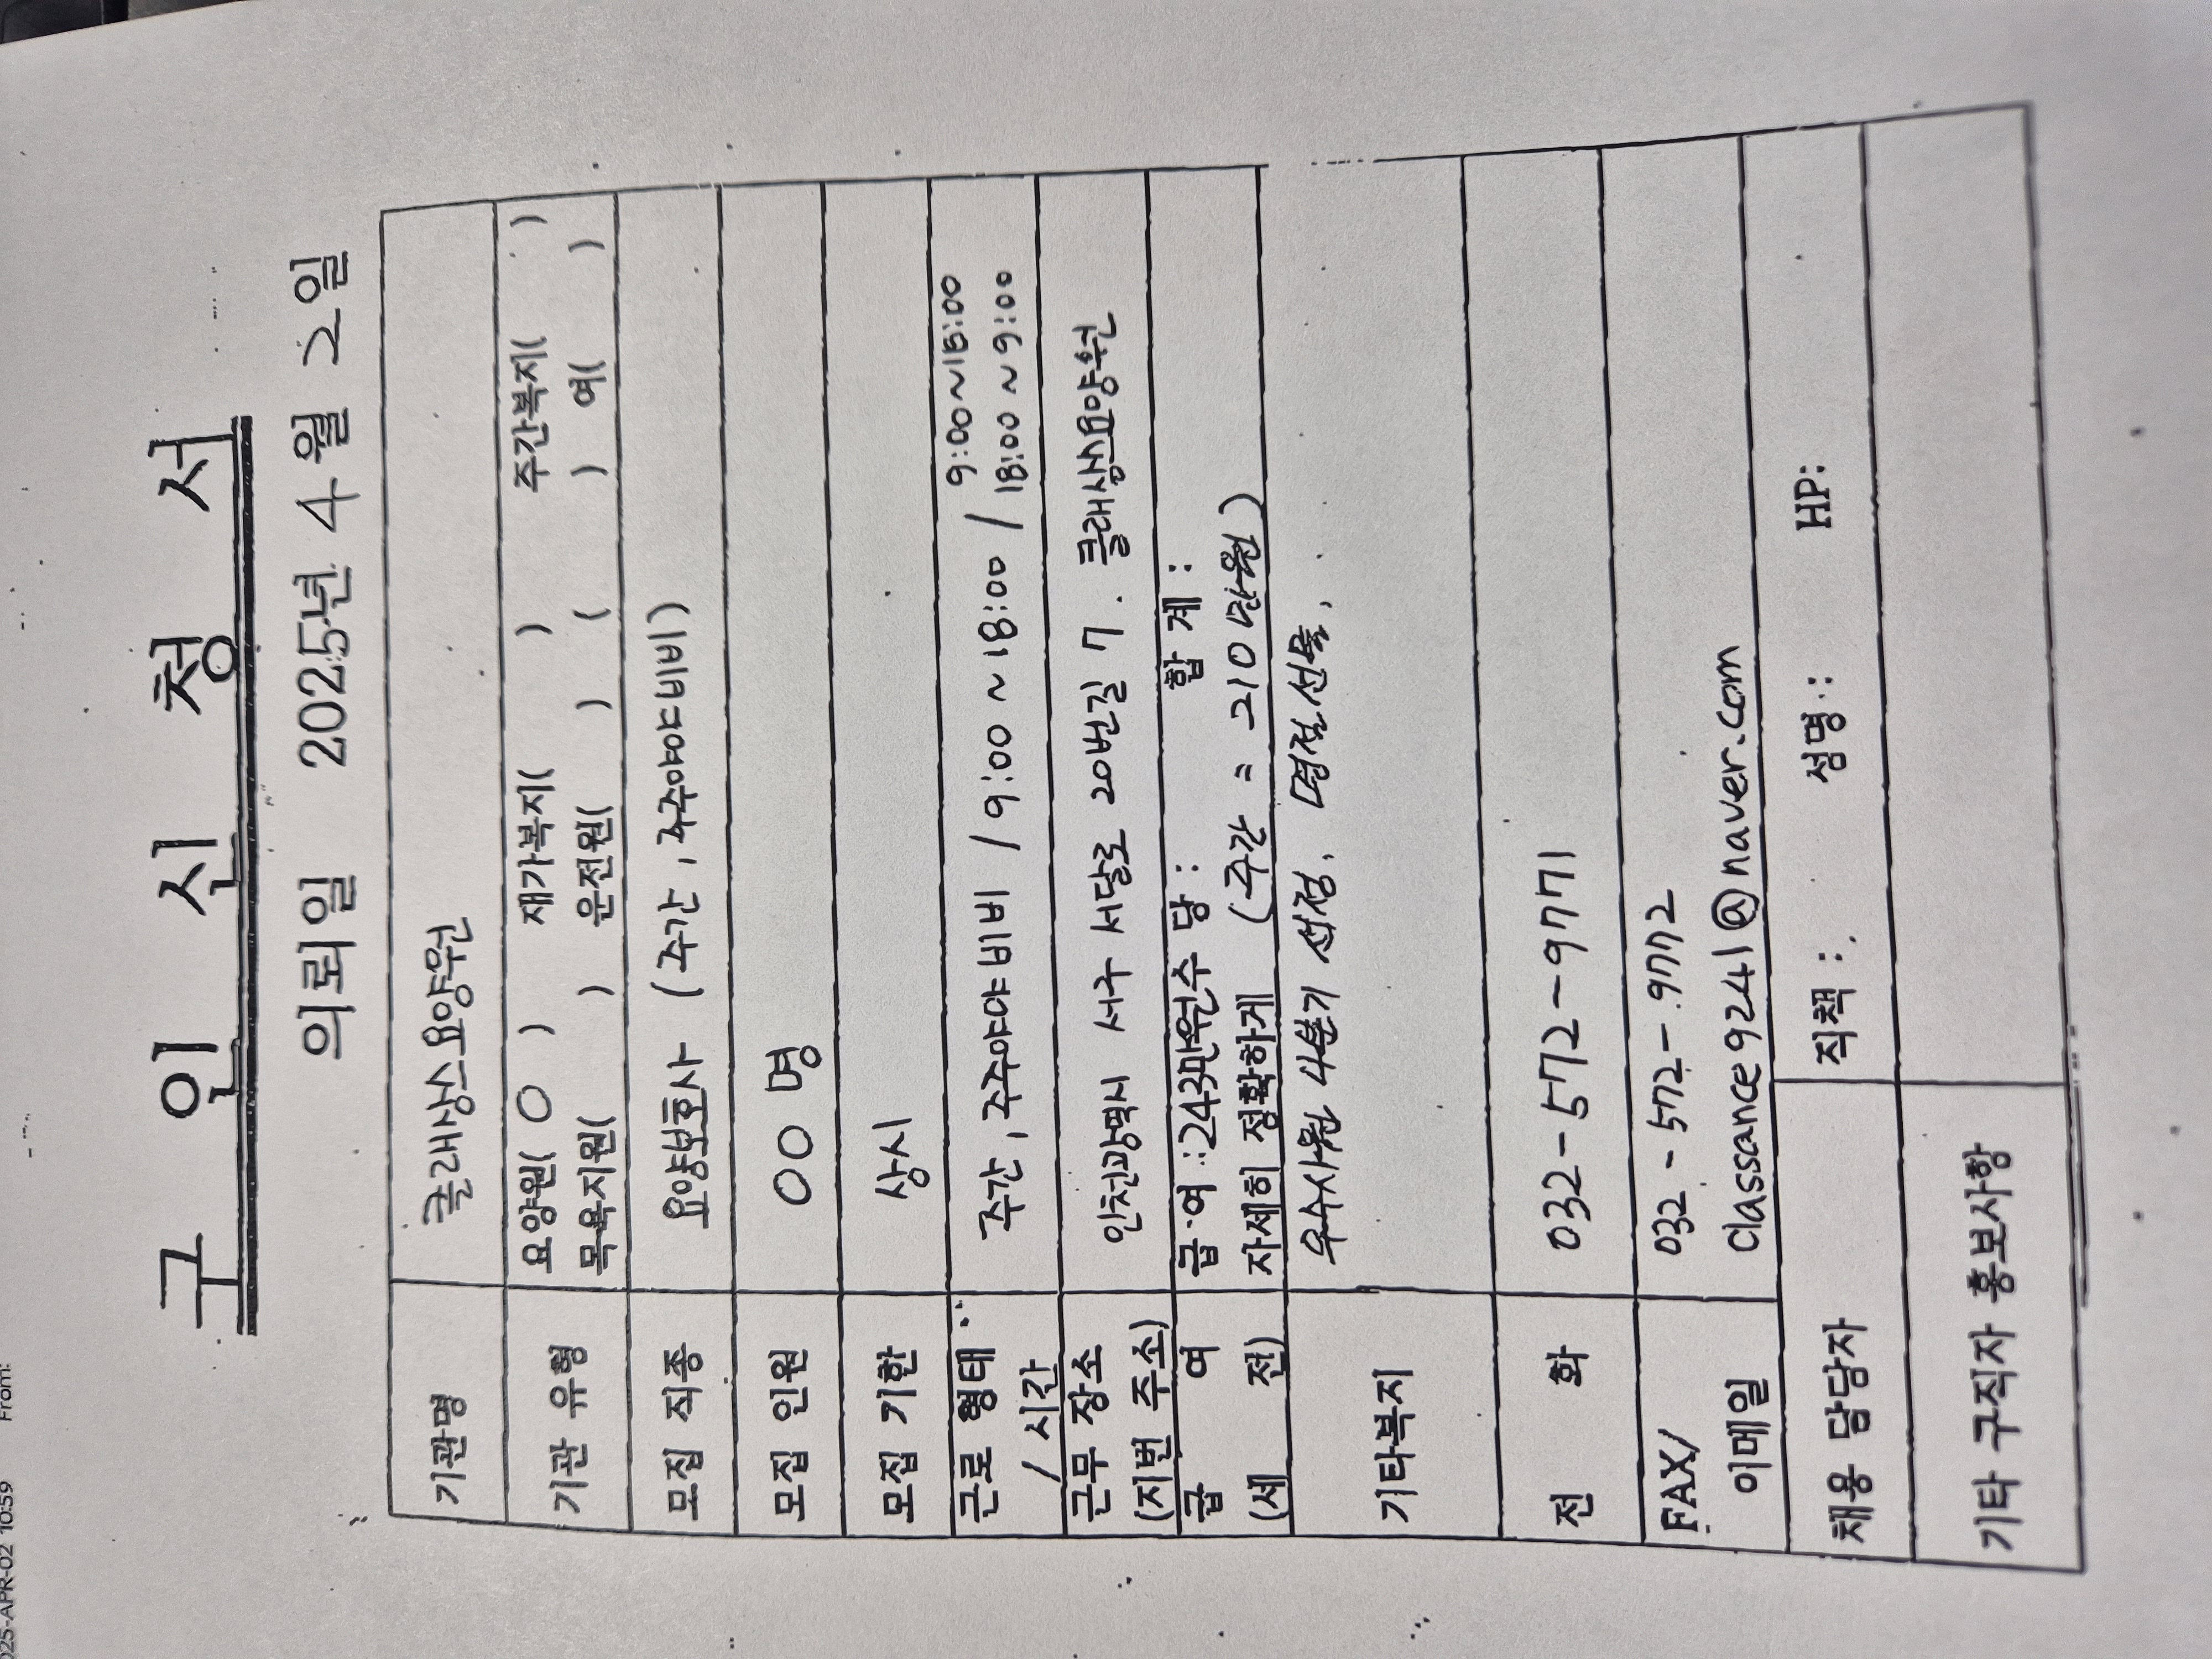 025-APR-02 10:59 From:
구 인 신 청 서
의뢰일 2025년 4월 2일
기관명 클래상스요양원
기관 유형 요양원( O ) 재가복지( ) 주간복지( )
목욕지원( ) 운전원( ) ( ) 여( )
모집 직종 요양보호사 (주간, 주주야야비비)
모집 인원 00 명
모집 기한 상시
근로 형태 / 시간 주간, 주주야야비비 / 9:00 ~ 18:00 / 9:00 ~ 18:00
18:00 ~ 9:00
근무 장소 (지번 주소) 인천광역시 서구 서달로 20번길 7. 클래상스요양원
급 여 (세 전) 급·여 : 243만원 수 당 : 합 계 :
자세히 정확하게 (주간 = 210만원)
기타복지 우수사원 4분기 선정. 명절선물.
전 화 032-572-9771
FAX/ 032-572-9772
이메일 classance9241@naver.com
채용 담당자 직책 : 성명 : HP:
기타 구직자 홍보사항